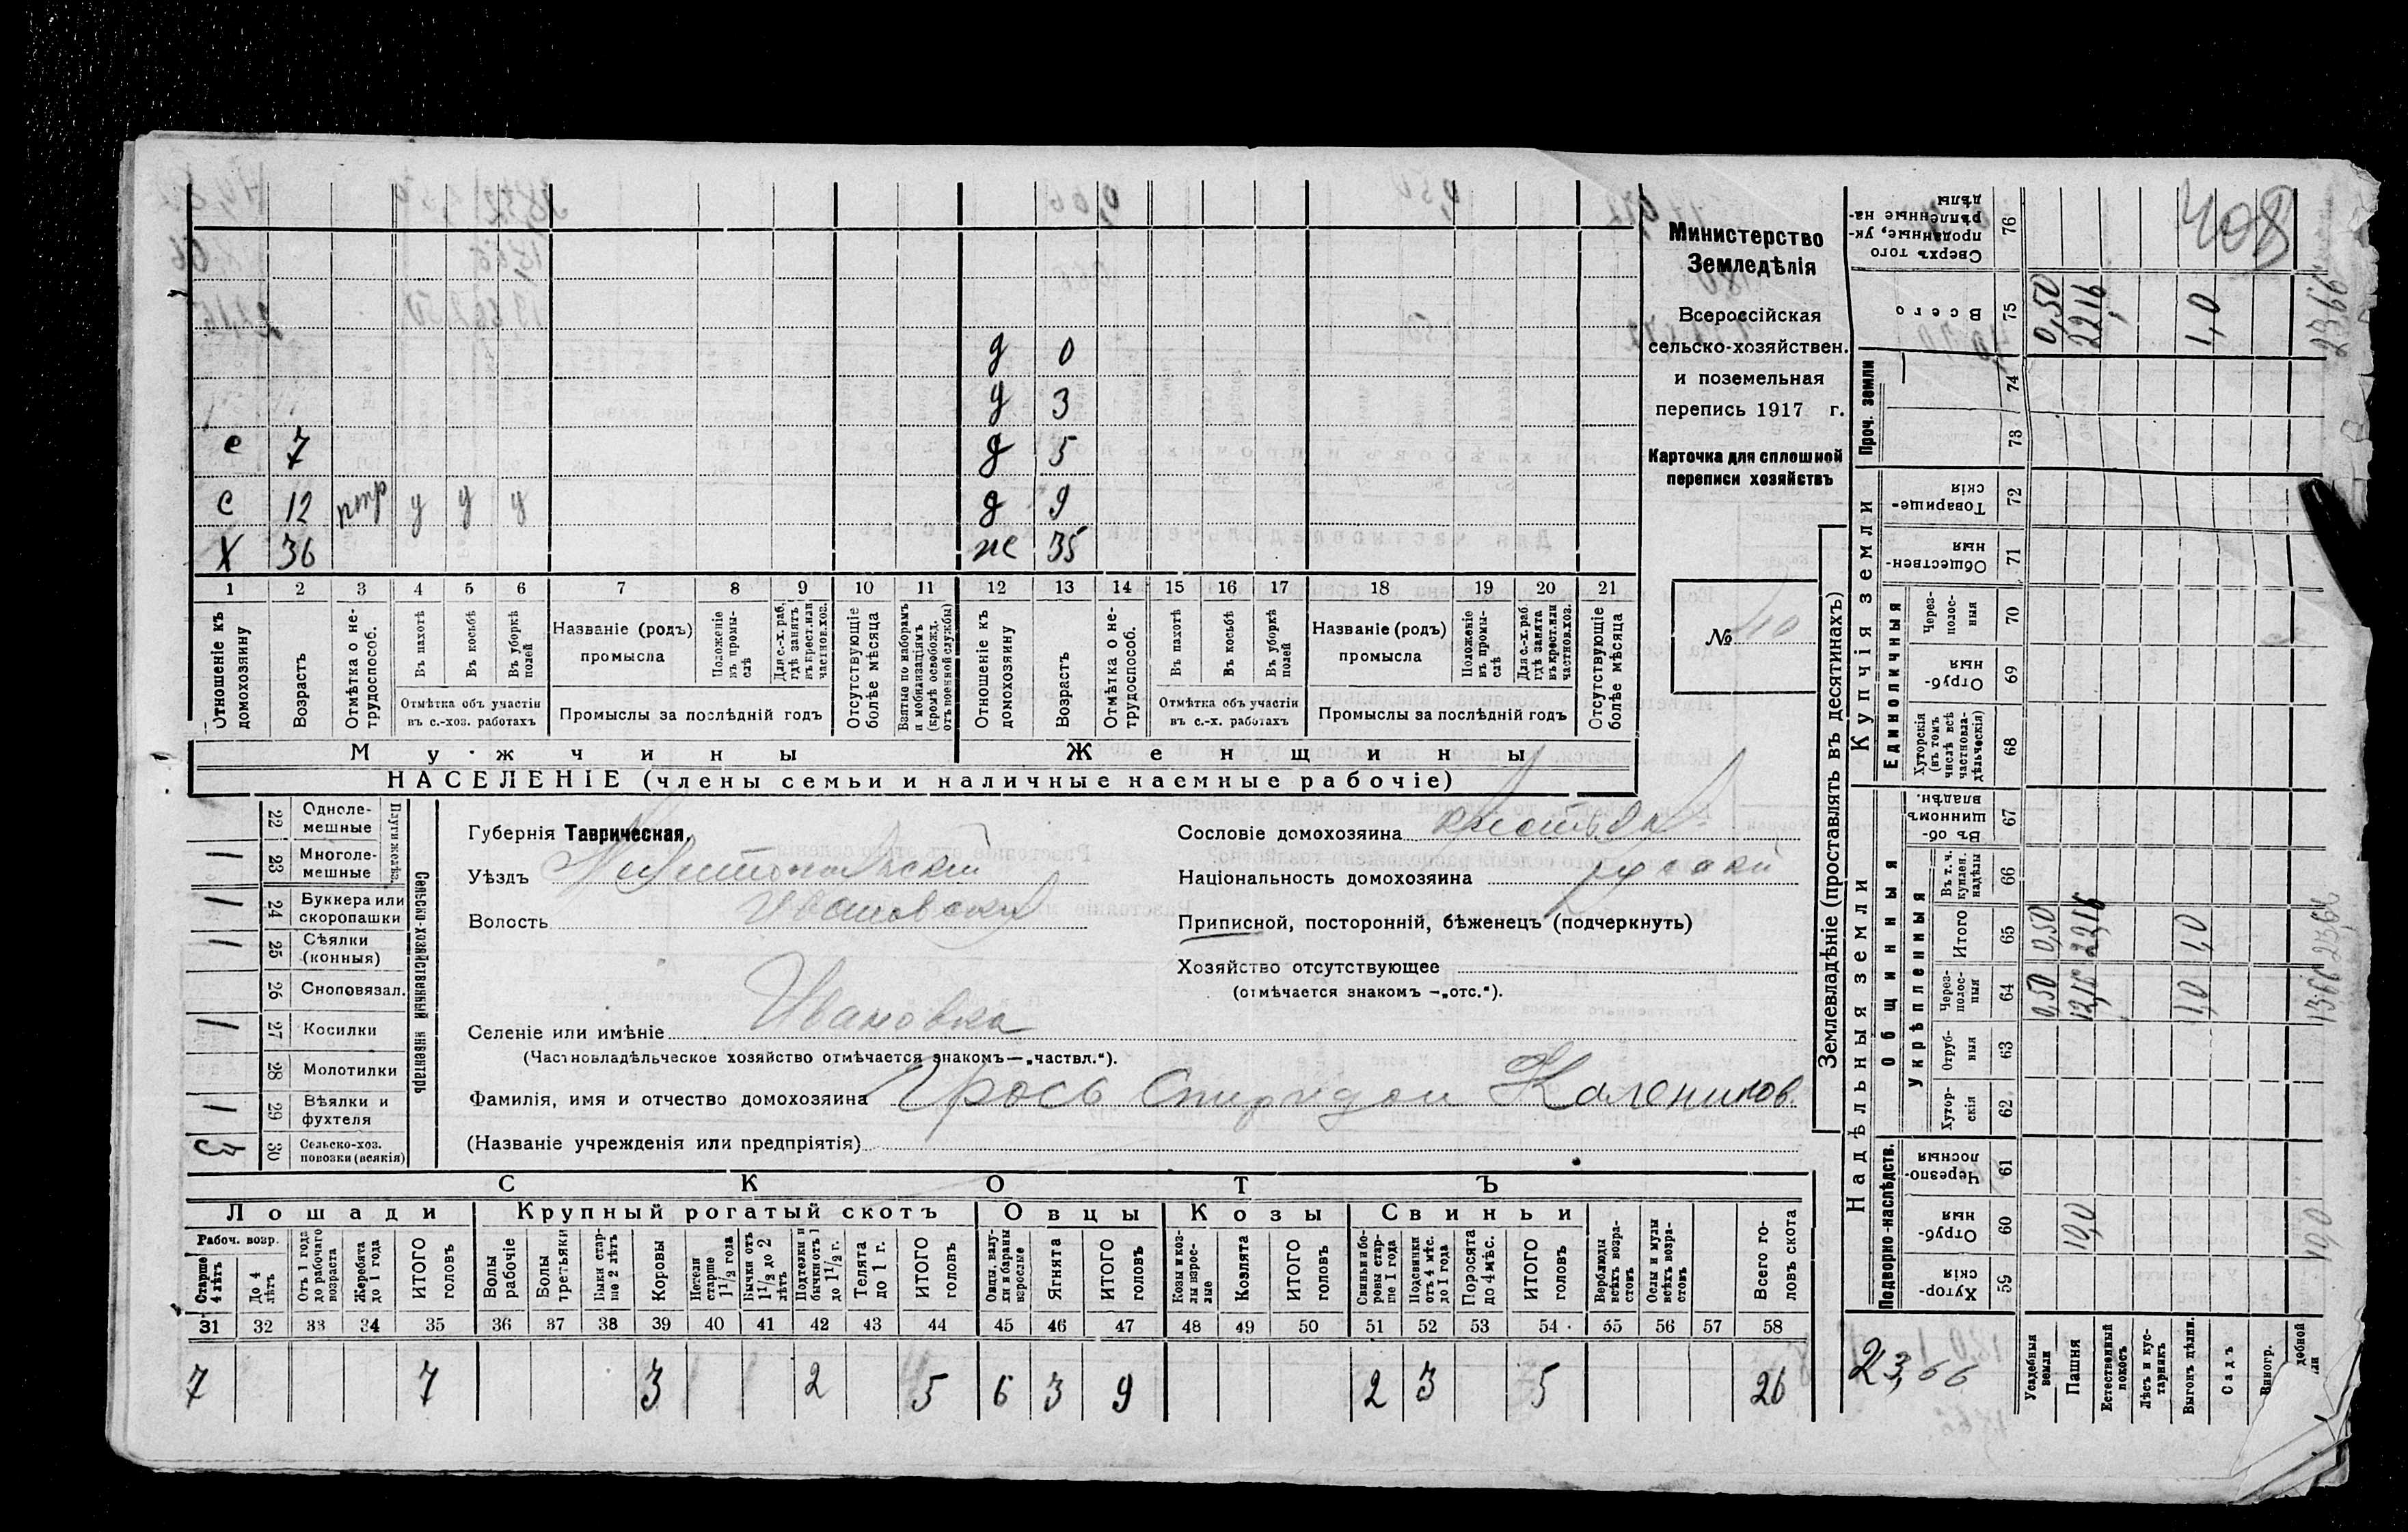 408
Министерство
Земледѣлія
Всероссійская
сельско-хозяйствен.
и поземельная
перепись 1917 г.
Карточка для сплошной
переписи хозяйствъ
№ 10
д 0
д 3
е 7 д 5
с 12 птр у у у д 9
X 36 же 35
1 2 3 4 5 6 7 8 9 10 11 12 13 14 15 16 17 18 19 20 21
Отношеніе къ домохозяину
Возрастъ
Отмѣтка о нетрудоспособ.
Въ пахотѣ
Въ косьбѣ
Въ уборкѣ полей
Отмѣтка объ участіи въ с.-хоз. работахъ
Названіе (родъ) промысла
Положеніе въ промыслѣ
Для с.-х. раб. гдѣ занятъ въ крест. или частнов. хоз.
Промыслы за послѣдній годъ
Отсутствующіе болѣе мѣсяца
Взятые по наборамъ и мобилизаціямъ (кромѣ освобожд. отъ военной службы)
Отношеніе къ домохозяину
Возрастъ
Отмѣтка о нетрудоспособ.
Въ пахотѣ
Въ косьбѣ
Въ уборкѣ полей
Отмѣтка объ участіи въ с.-х. работахъ
Названіе (родъ) промысла
Положеніе въ промыслѣ
Для с.-х. раб. гдѣ занята въ крест. или частнов. хоз.
Промыслы за послѣдній годъ
Отсутствующіе болѣе мѣсяца
Мужчины
Женщины
НАСЕЛЕНІЕ (члены семьи и наличные наемные рабочіе)
Сельско-хозяйственный инвентарь
Плуги желѣз.
22 Однолемешные
1 23 Многолемешные
1 24 Буккера или скоропашки
1 25 Сѣялки (конныя)
26 Сноповязал.
1 27 Косилки
28 Молотилки
1 29 Вѣялки и фухтеля
3 30 Сельско-хоз. повозки (всякія)
Губернія Таврическая.
Уѣздъ Мелитопольскій
Волость Ивановская
Селеніе или имѣніе Ивановка
(Частновладѣльческое хозяйство отмѣчается знакомъ — „частвл.“).
Фамилія, имя и отчество домохозяина Ярось Спиридон Калеников.
(Названіе учрежденія или предпріятія)
Сословіе домохозяина
Національность домохозяина
Приписной, посторонній, бѣженецъ (подчеркнуть)
Хозяйство отсутствующее
(отмѣчается знакомъ — „отс.“).
СКОТЪ
Лошади
Крупный рогатый скотъ
Овцы
Козы
Свиньи
Рабоч. возр.
Старше 4 лѣтъ
До 4 лѣтъ
Отъ 1 года до рабочаго возраста
Жеребята до 1 года
ИТОГО головъ
Волы рабочіе
Волы третьяки
Быки старше 2 лѣтъ
Коровы
Нетели старше 1 1/2 года
Бычки отъ 1 1/2 до 2 лѣтъ
Подтелки и бычки отъ 1 до 1 1/2 г.
Телята до 1 г.
ИТОГО головъ
Овцы, валухи и бараны взрослые
Ягнята
ИТОГО головъ
Козы и козлы взрослые
Козлята
ИТОГО головъ
Свиньи и боровы старше 1 года
Подсвинки отъ 4 мѣс. до 1 года
Поросята до 4 мѣс.
ИТОГО головъ
Верблюды всѣхъ возрастовъ
Ослы и мулы всѣхъ возрастовъ
Всего головъ скота
31 32 33 34 35 36 37 38 39 40 41 42 43 44 45 46 47 48 49 50 51 52 53 54 55 56 57 58
7 7 3 2 5 6 3 9 2 3 5 26
Землевладѣніе (проставлять въ десятинахъ)
Надѣльныя земли
Купчія земли
Проч. земли
Подворно-наслѣдств.
Общинныя
Укрѣпленныя
Единоличныя
Хуторскія 59
Отрубныя 60 10,0
Черезполосныя 61
Хуторскія 62
Отрубныя 63
Черезполосныя 64 0,50 1,0
Итого 65 0,50 22,16 1,0
Въ т. ч. куплен. надѣлы 66
Въ общинномъ владѣн. 67
Хуторскія (въ томъ числѣ всѣ частновладѣльческія) 68
Отрубныя 69
Черезполосныя 70
Общественныя 71
Товарищескія 72
73
74
Всего 75 0,50 22,16 1,0 23,66
Сверхъ того проданные, укрѣпленные надѣлы 76
Усадебныя земли
Пашня
Естественный покосъ
Лѣсъ и кустарникъ
Выгонъ дѣлин.
Садъ
Виногр.
23,66
13,66 23,66
10,0